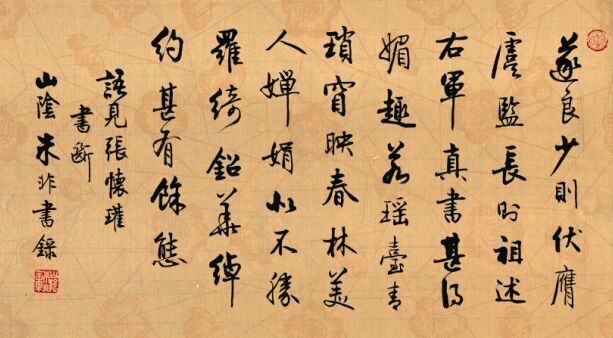 遂良少則伏膺
虞監長則祖述
右軍真書甚得
媚趣若瑤臺青
瑣窅映春林美
人嬋娟似不勝
羅綺鉛華綽
約甚有餘態
語見張懷瓘
書斷
山陰朱非書錄